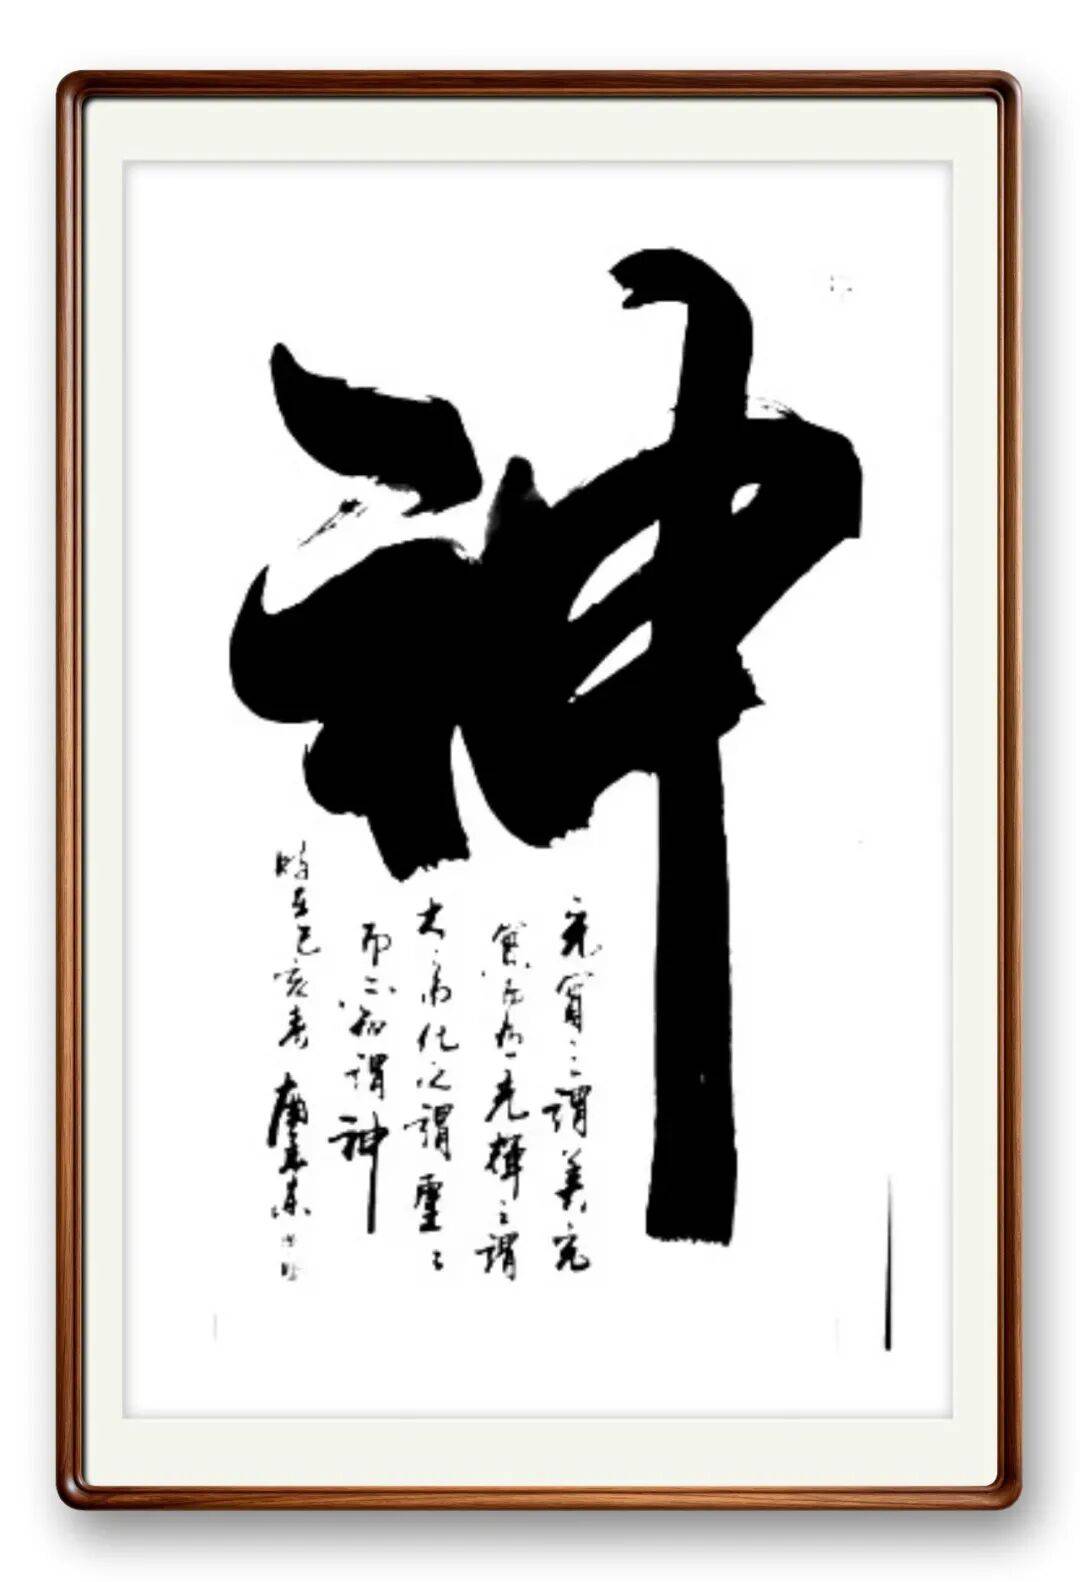 神
充實之謂美充
實而有光輝之謂
大々而化之謂聖々
而不可知謂神
時在己亥春